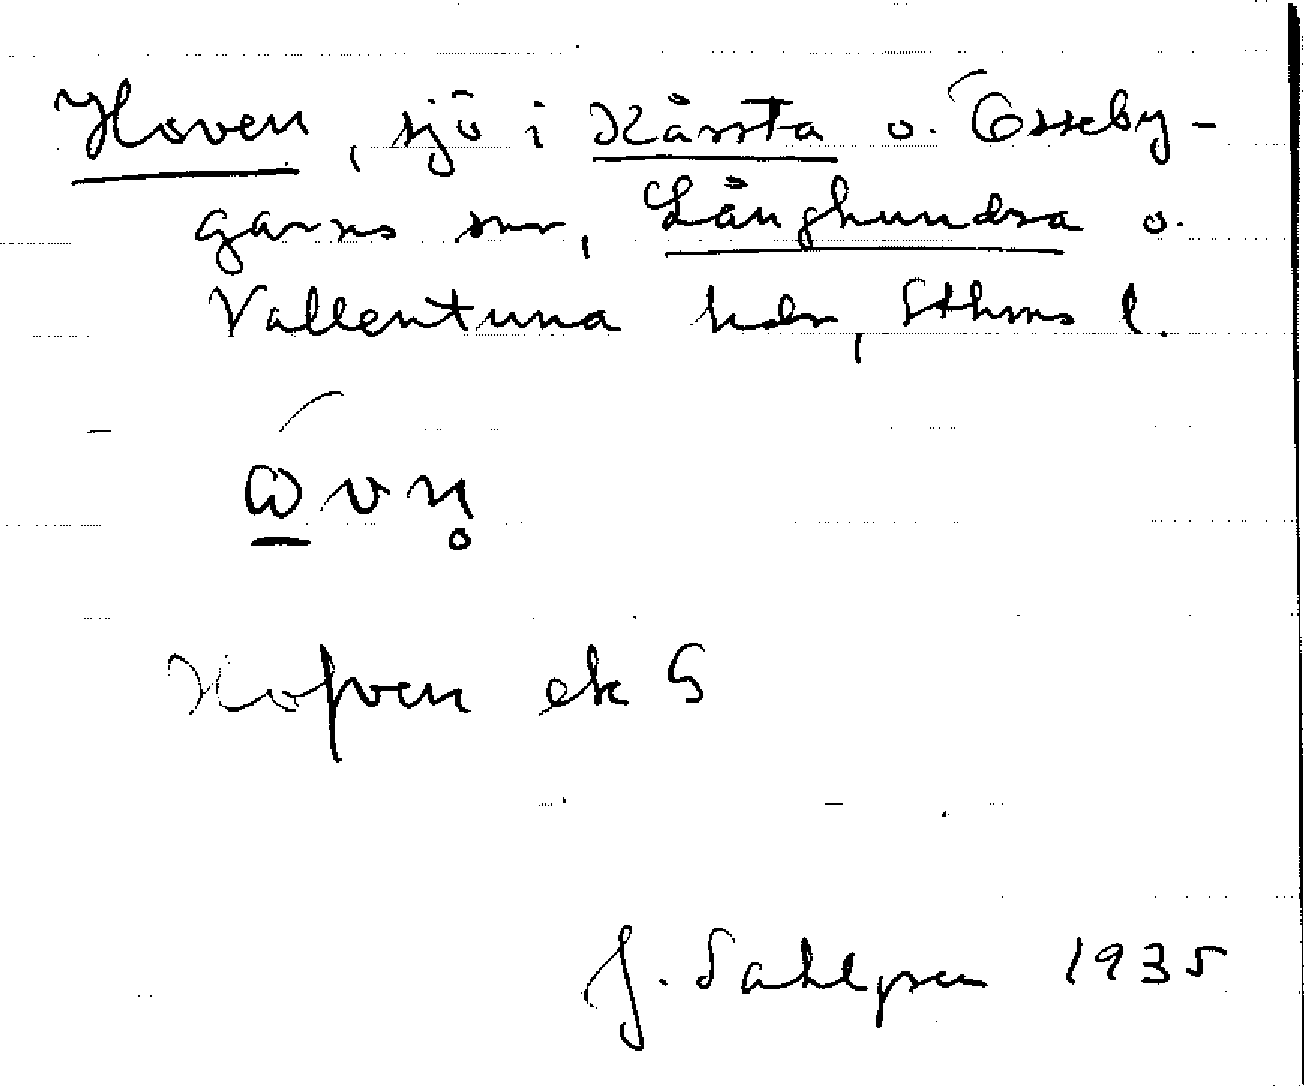 Hoven, sjö i Kårsta o. Össeby-
garns snr, Långhundra o.
Vallentuna hdr, Sthms l.
Hofven ek S
J. Sahlgren 1935